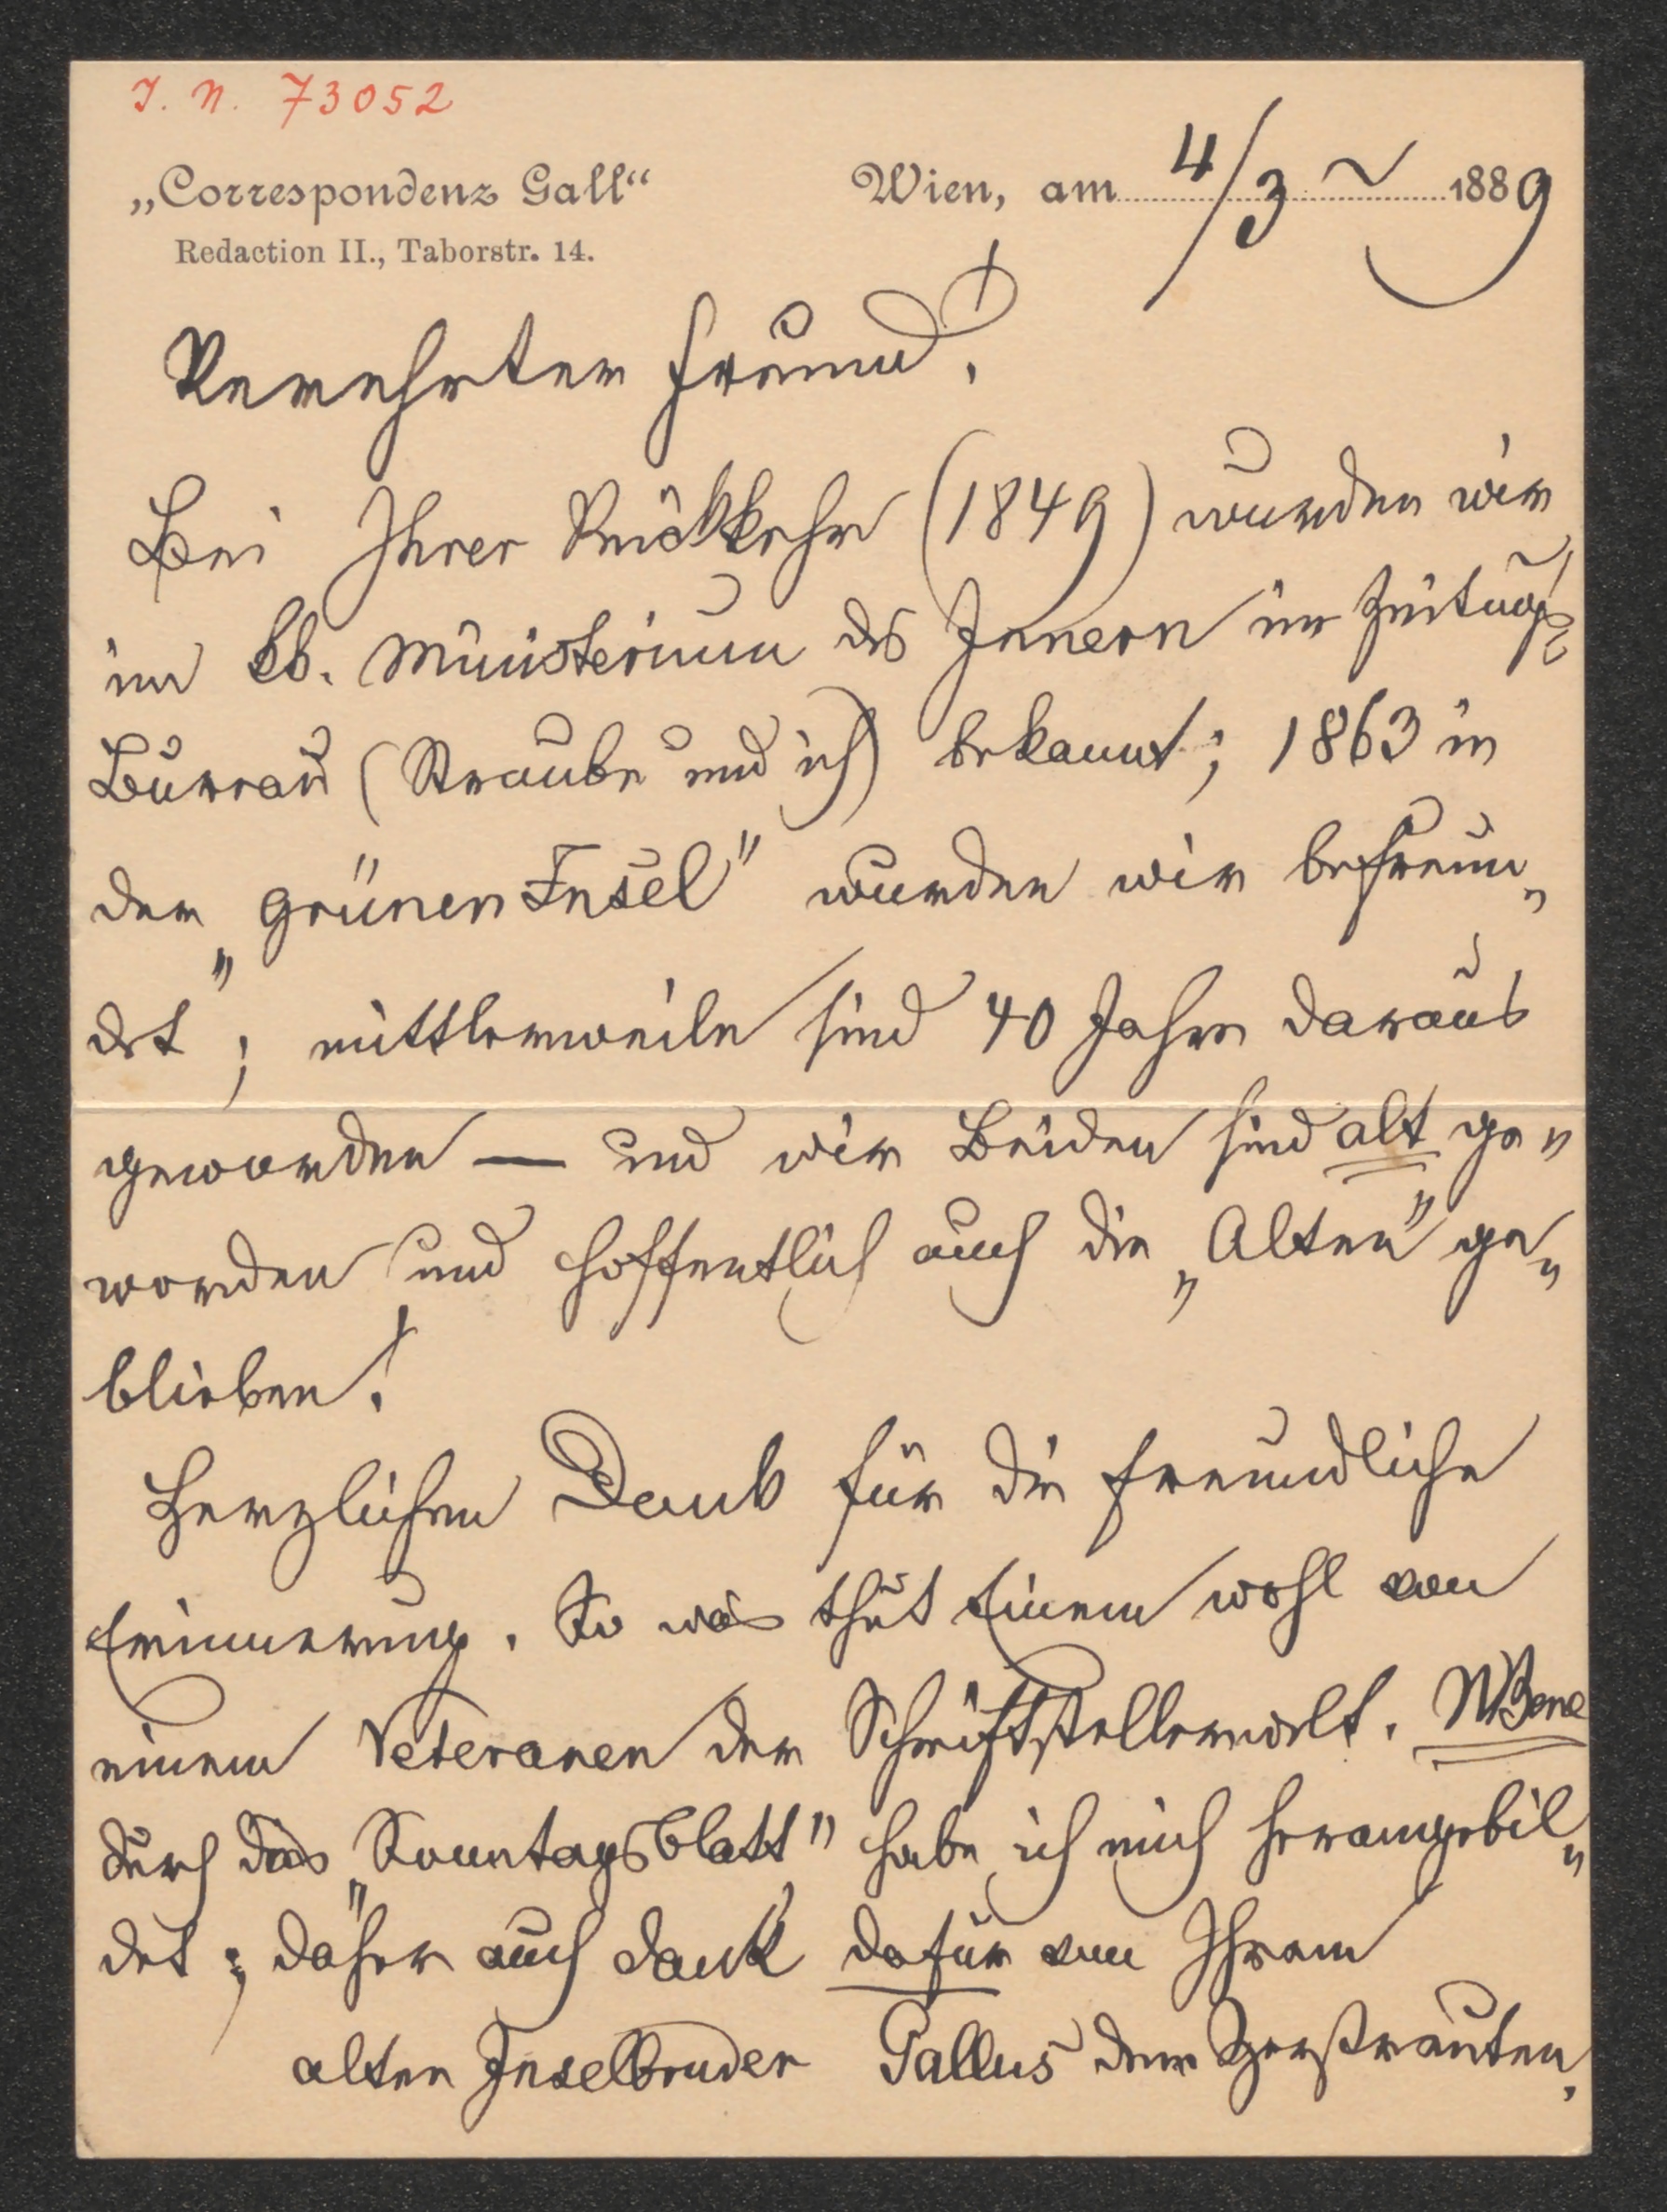 I. N. 73052
„Correspondenz Gall“
Wien, am 4/3 ~ 1889
Redaction II., Taborstr. 14.
Verehrter Freund!
Bei Ihrer Rückkehr (1849) wurden wir
im kk. Ministerium des Innern im Zeitungs-
Bureau (Straube und ich) bekannt; 1863 in
der „grünen Insel" wurden wir befreun„
det; mittlerweile sind 40 Jahre daraus
geworden — und wir Beiden sind alt ge„
worden und hoffentlich auch die „Alten" ge„
blieben!
Herzlichen Dank für die freundliche
Erinnerung. So was thut Einem wohl von
einem Veteranen der Schriftstellerwelt. NBene
durch das „Sonntagsblatt" habe ich mich herangebil„
det; daher auch Dank dafür von Ihrem
alten Inselbruder Gallus dem Zerstreuten.